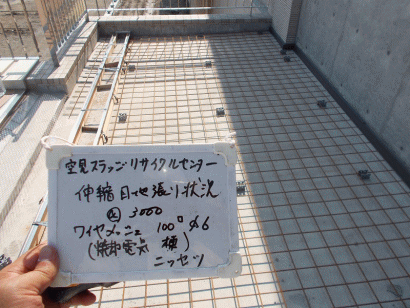 空見スラッジリサイクルセンター
伸縮目地張り状況
@ 3000
ワイヤメッシュ 100□ φ6
(焼却電気棟)
ニッセツ